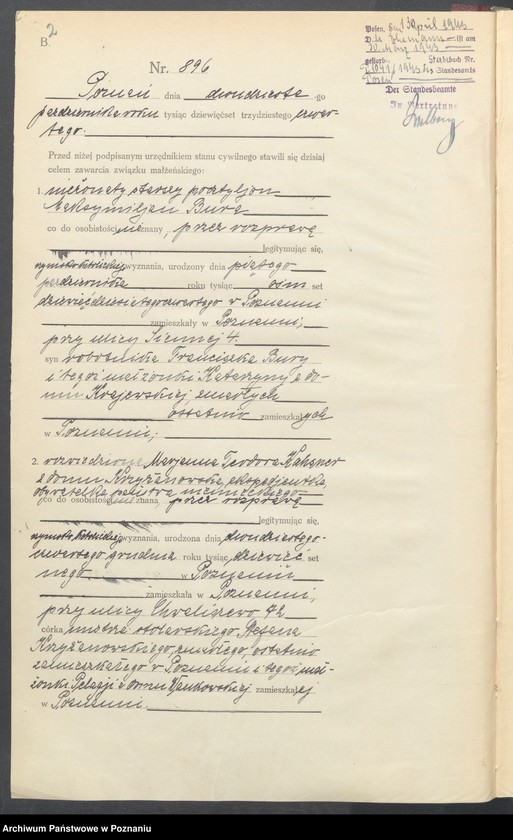 2
B.
Posen, den 13 April 1943
ist am
30. März 1943
gestorben Sterbebuch Nr.
1943 des Standesamts
Posen
Der Standesbeamte
In Vertretung
Nr. 896
Poznań dnia dwudziestego
października roku tysiąc dziewięćset trzydziestego czwar-
tego.
Przed niżej podpisanym urzędnikiem stanu cywilnego stawili się dzisiaj
celem zawarcia związku małżeńskiego:
1. nieżonaty starszy pocztyljon
Maksymiljan Bura
co do osobistości nieznany, przez rozprawę
legitymując się,
rzymsko katolickiego wyznania, urodzony dnia piątego
października roku tysiąc ośm set
dziewięćdziesiątego czwartego w Poznaniu
zamieszkały w Poznaniu,
przy ulicy Siennej 4.
syn robotnika Franciszka Bury
i tegoż małżonki Katarzyny z do-
mu Krajewskiej, zmarłych
ostatnio zamieszkałych
w Poznaniu;
2. rozwiedziona Marjanna Teodora
z domu Krzyżanowska, ekspedjentka,
obywatelka państwa niemieckiego
co do osobistości nieznana, przez rozprawę
legitymując się,
rzymsko katolickiego wyznania, urodzona dnia dwudziestego-
czwartego grudnia roku tysiąc dziewięć set
nego w Poznaniu
zamieszkała w Poznaniu,
przy ulicy Chwaliszewo 72
córka mistrza stolarskiego, Stefana
Krzyżanowskiego, zmarłego, ostatnio
zamieszkałego w Poznaniu i tegoż mał-
żonki Pelagji z domu zamieszkałej
w Poznaniu.
Archiwum Państwowe w Poznaniu